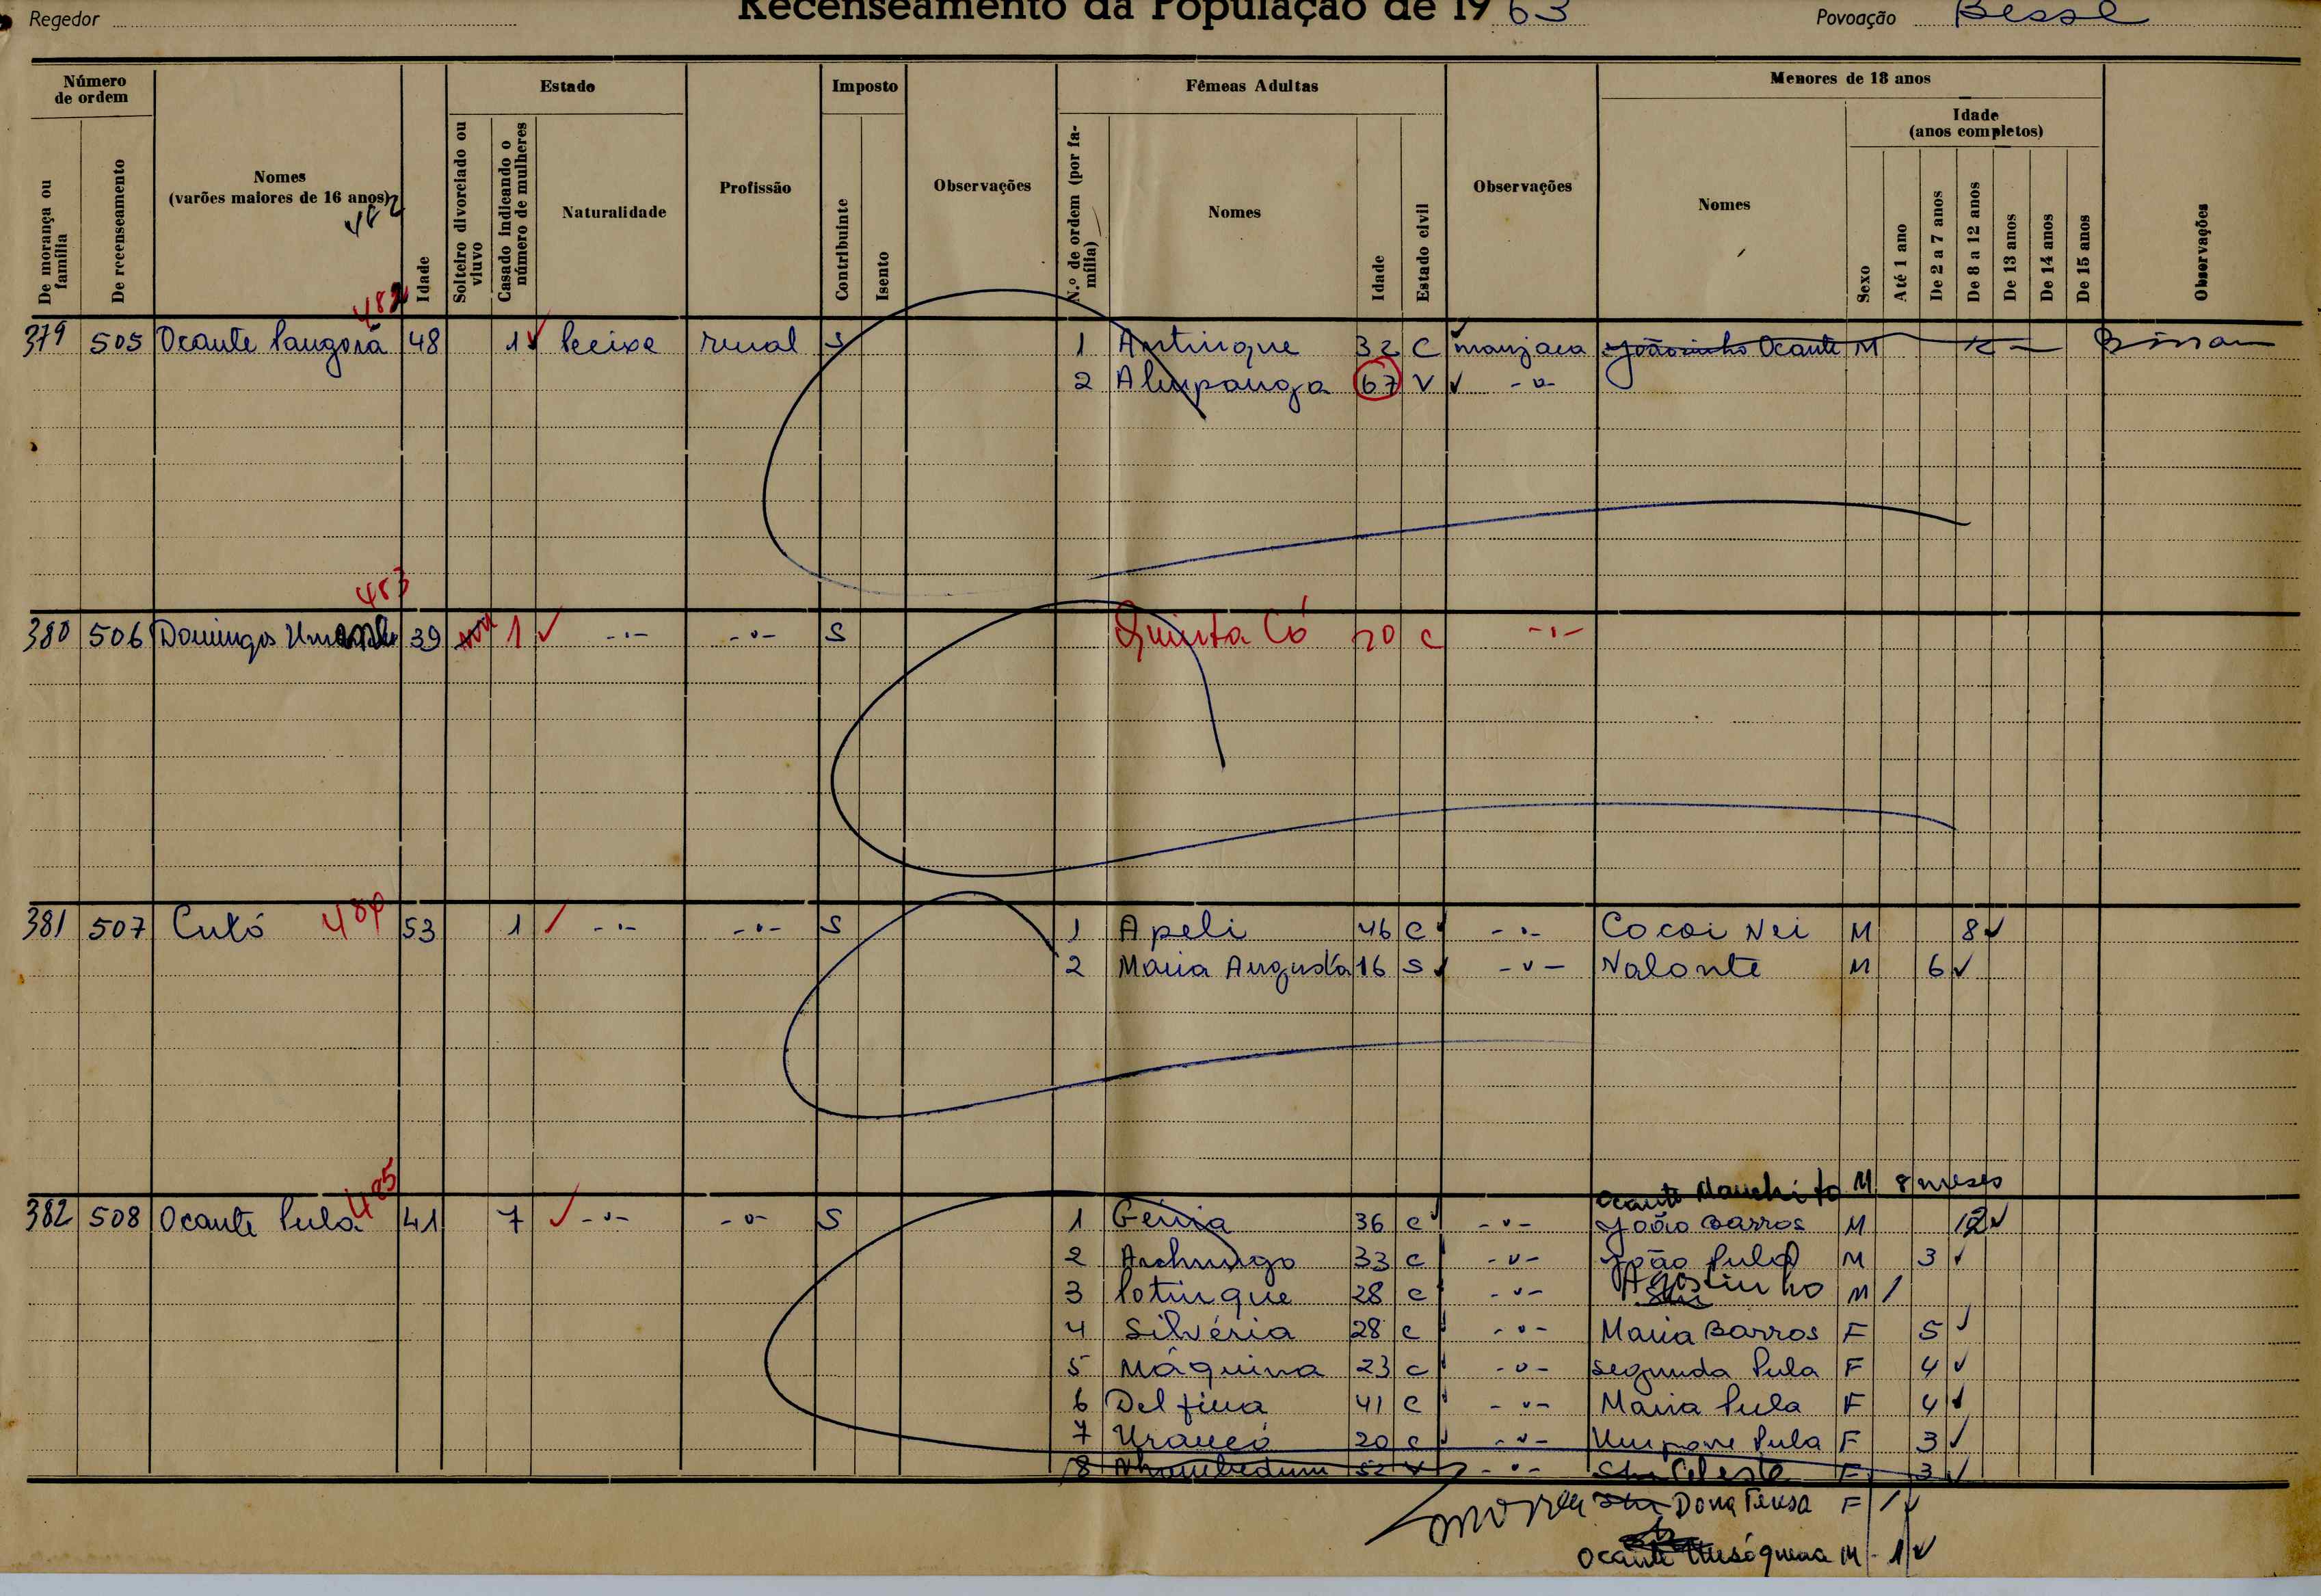 Regedor
Recenseamento da População de 1963
Povoação Besse
Número de ordem
Estado
Imposto
Fêmeas Adultas
Menores de 18 anos
De morança ou família
De recenseamento
Nomes
(varões maiores de 16 anos)
482
Idade
Solteiro divorciado ou viuvo
Casado indicando o número de mulheres
Naturalidade
Profissão
Contribuinte
Isento
Observações
N.º de ordem (por família)
Nomes
Idade
Estado civil
Observações
Nomes
Sexo
Idade
(anos completos)
Até 1 ano
De 2 a 7 anos
De 8 a 12 anos
De 13 anos
De 14 anos
De 15 anos
Observações
482
379 505 Ocante 48 1 rural S 1 Antinque 32 C manjaca Joãosinho Ocante M
2 67 V -"-
483
380 506 Domingos 39 1 -"- -"- S Quinta Có 20 C -"-
484
381 507 Cutó 53 1 -"- -"- S 1 Apeli 46 C -"- Cocoi Nei M 8
2 Maria Augusta 16 S -"- Nalonte M 6
485
Ocante Manchito M 8 meses
382 508 Ocante Pula 41 7 -"- -"- S 1 36 C -"- João Barros M 12
2 33 C -"- João Pula M 3
3 Potinque 28 C -"- Agostinho M /
4 Silvéria 28 C -"- Maria Barros F 5
5 Máquina 23 C -"- Segunda Pula F 4
6 Delfina 41 C -"- Maria Pula F 4
7 20 C -"- Pula F 3
8 52 V -"- Celeste F 3
Morreu Dona F /
Ocante M - 1